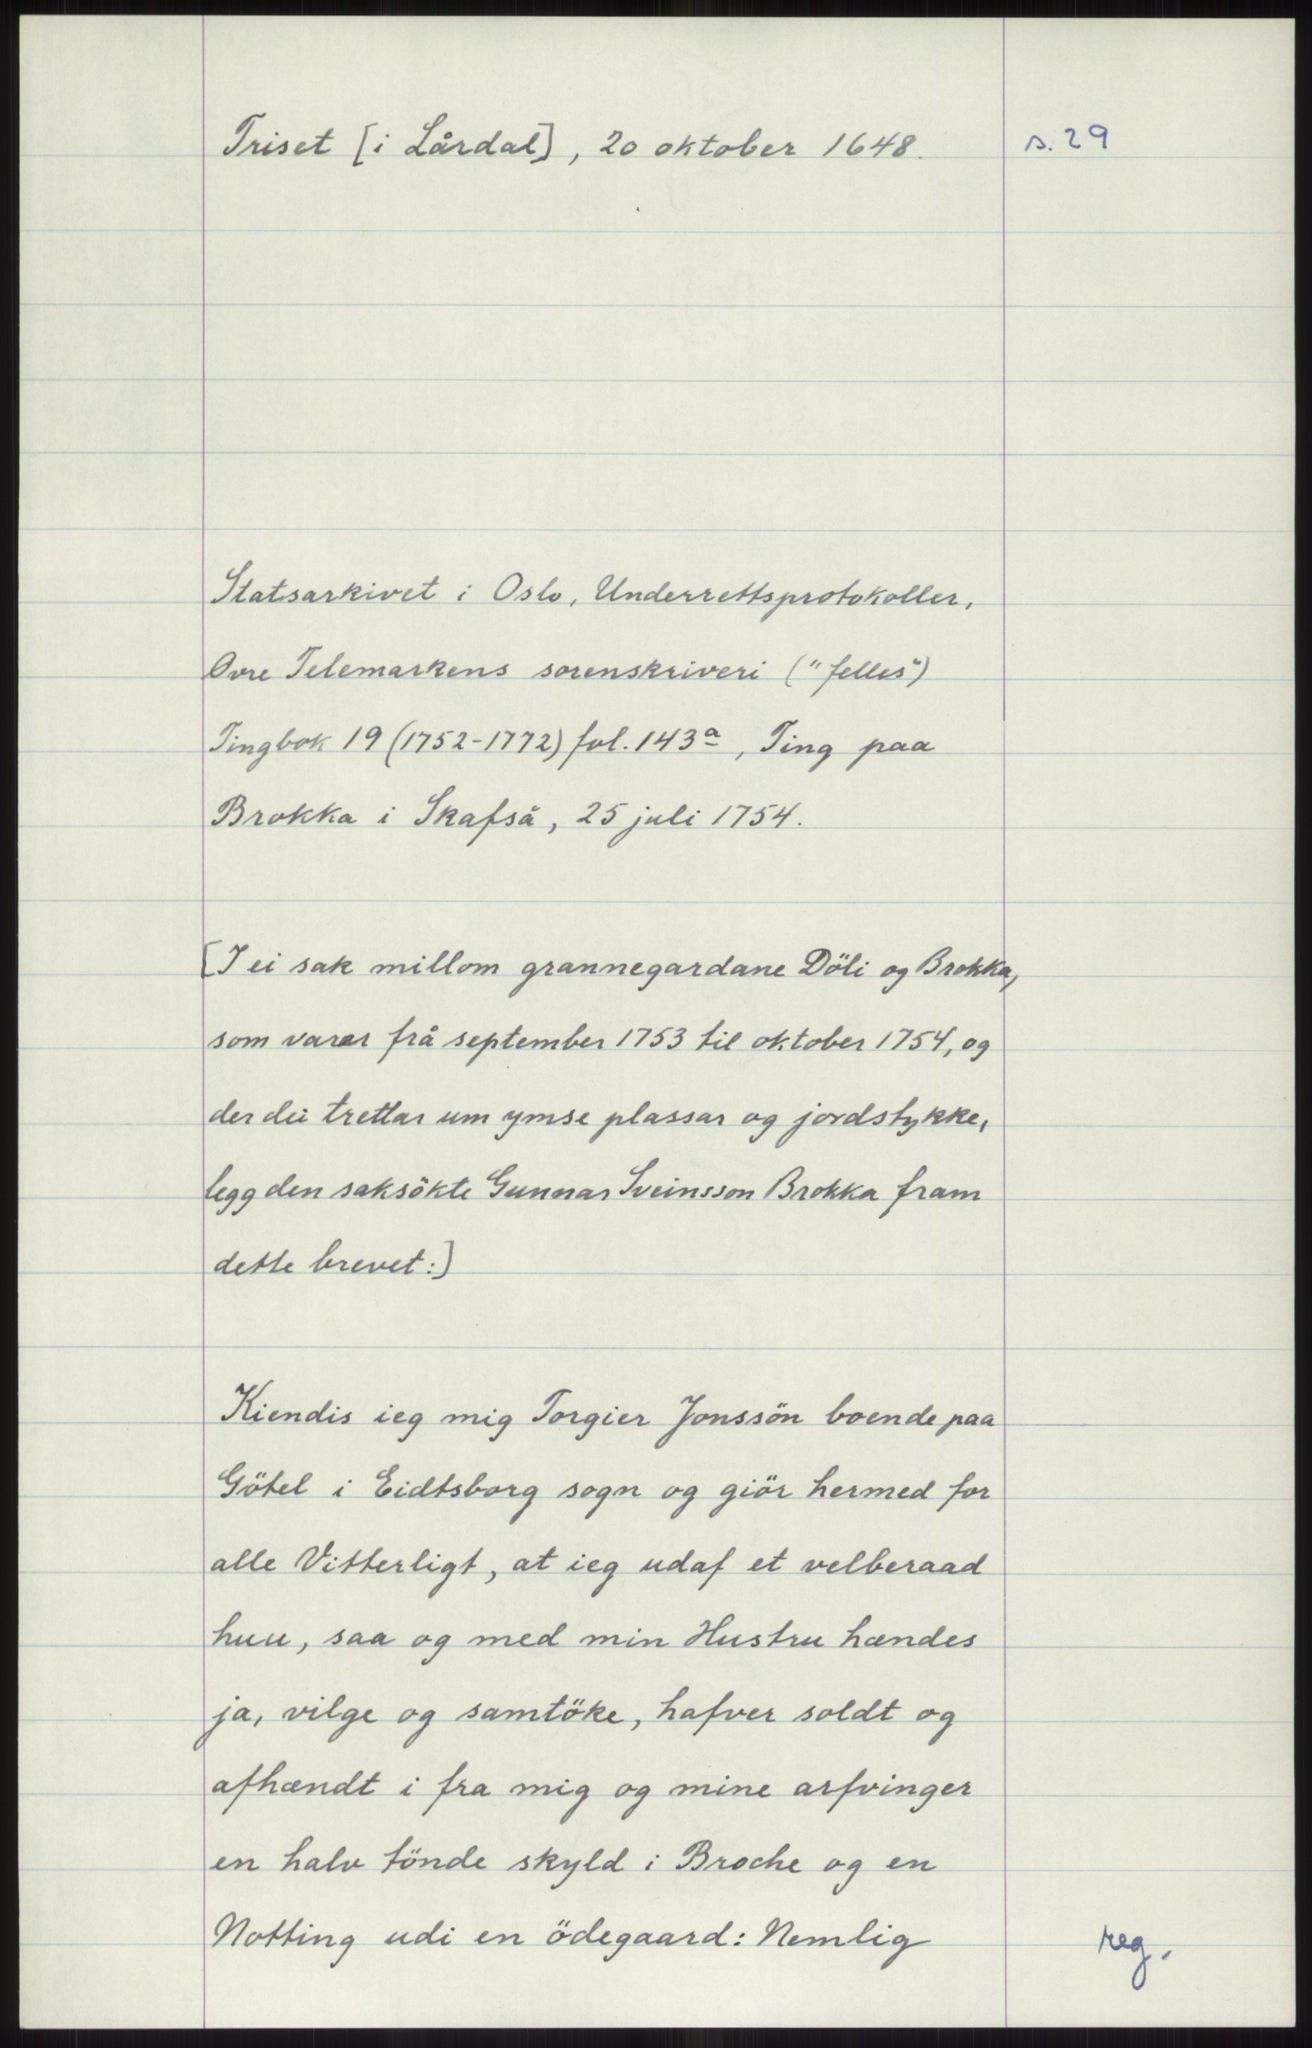 Triset [i Lårdal], 20 oktober 1648.
s. 29
Statsarkivet i Oslo, Underrettsprotokoller,
Øvre Telemarkens sorenskriveri ("felles")
Tingbok 19 (1752-1772) fol. 143a, Ting paa
Brokka i Skafså, 25 juli 1754.
[I ei sak millom grannegardane Döli og Brokka,
som varer frå september 1753 til oktober 1754, og
der dei trettar um ymse plassar og jordstykke,
legg den saksökte Gunnar Sveinsson Brokka fram
dette brevet:]
Kiendis ieg mig Torgier Jonssön boende paa
Götel i Eidtsborg sogn og giör hermed for
alle Vitterligt, at ieg udaf et velberaad
huu, saa og med min Hustru hændes
ja, vilge og samtöke, hafver soldt og
afhændt i fra mig og mine arfvinger
en halv tönde skyld i Broche og en
Notting udi en ödegaard: Nemlig
reg.